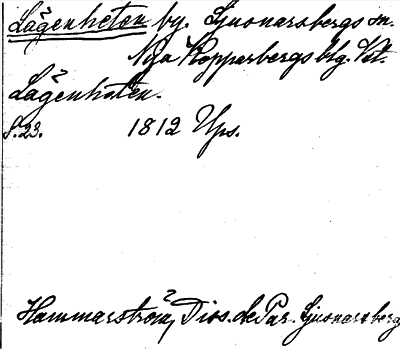 Lägenheten by. Ljusnarsbergs sn.
Nya Kopparbergs blg. Vst.
Lägenheten.
S. 23. 1812 Ups.
Hammarström, Diss. de Par. Ljusnarsberg